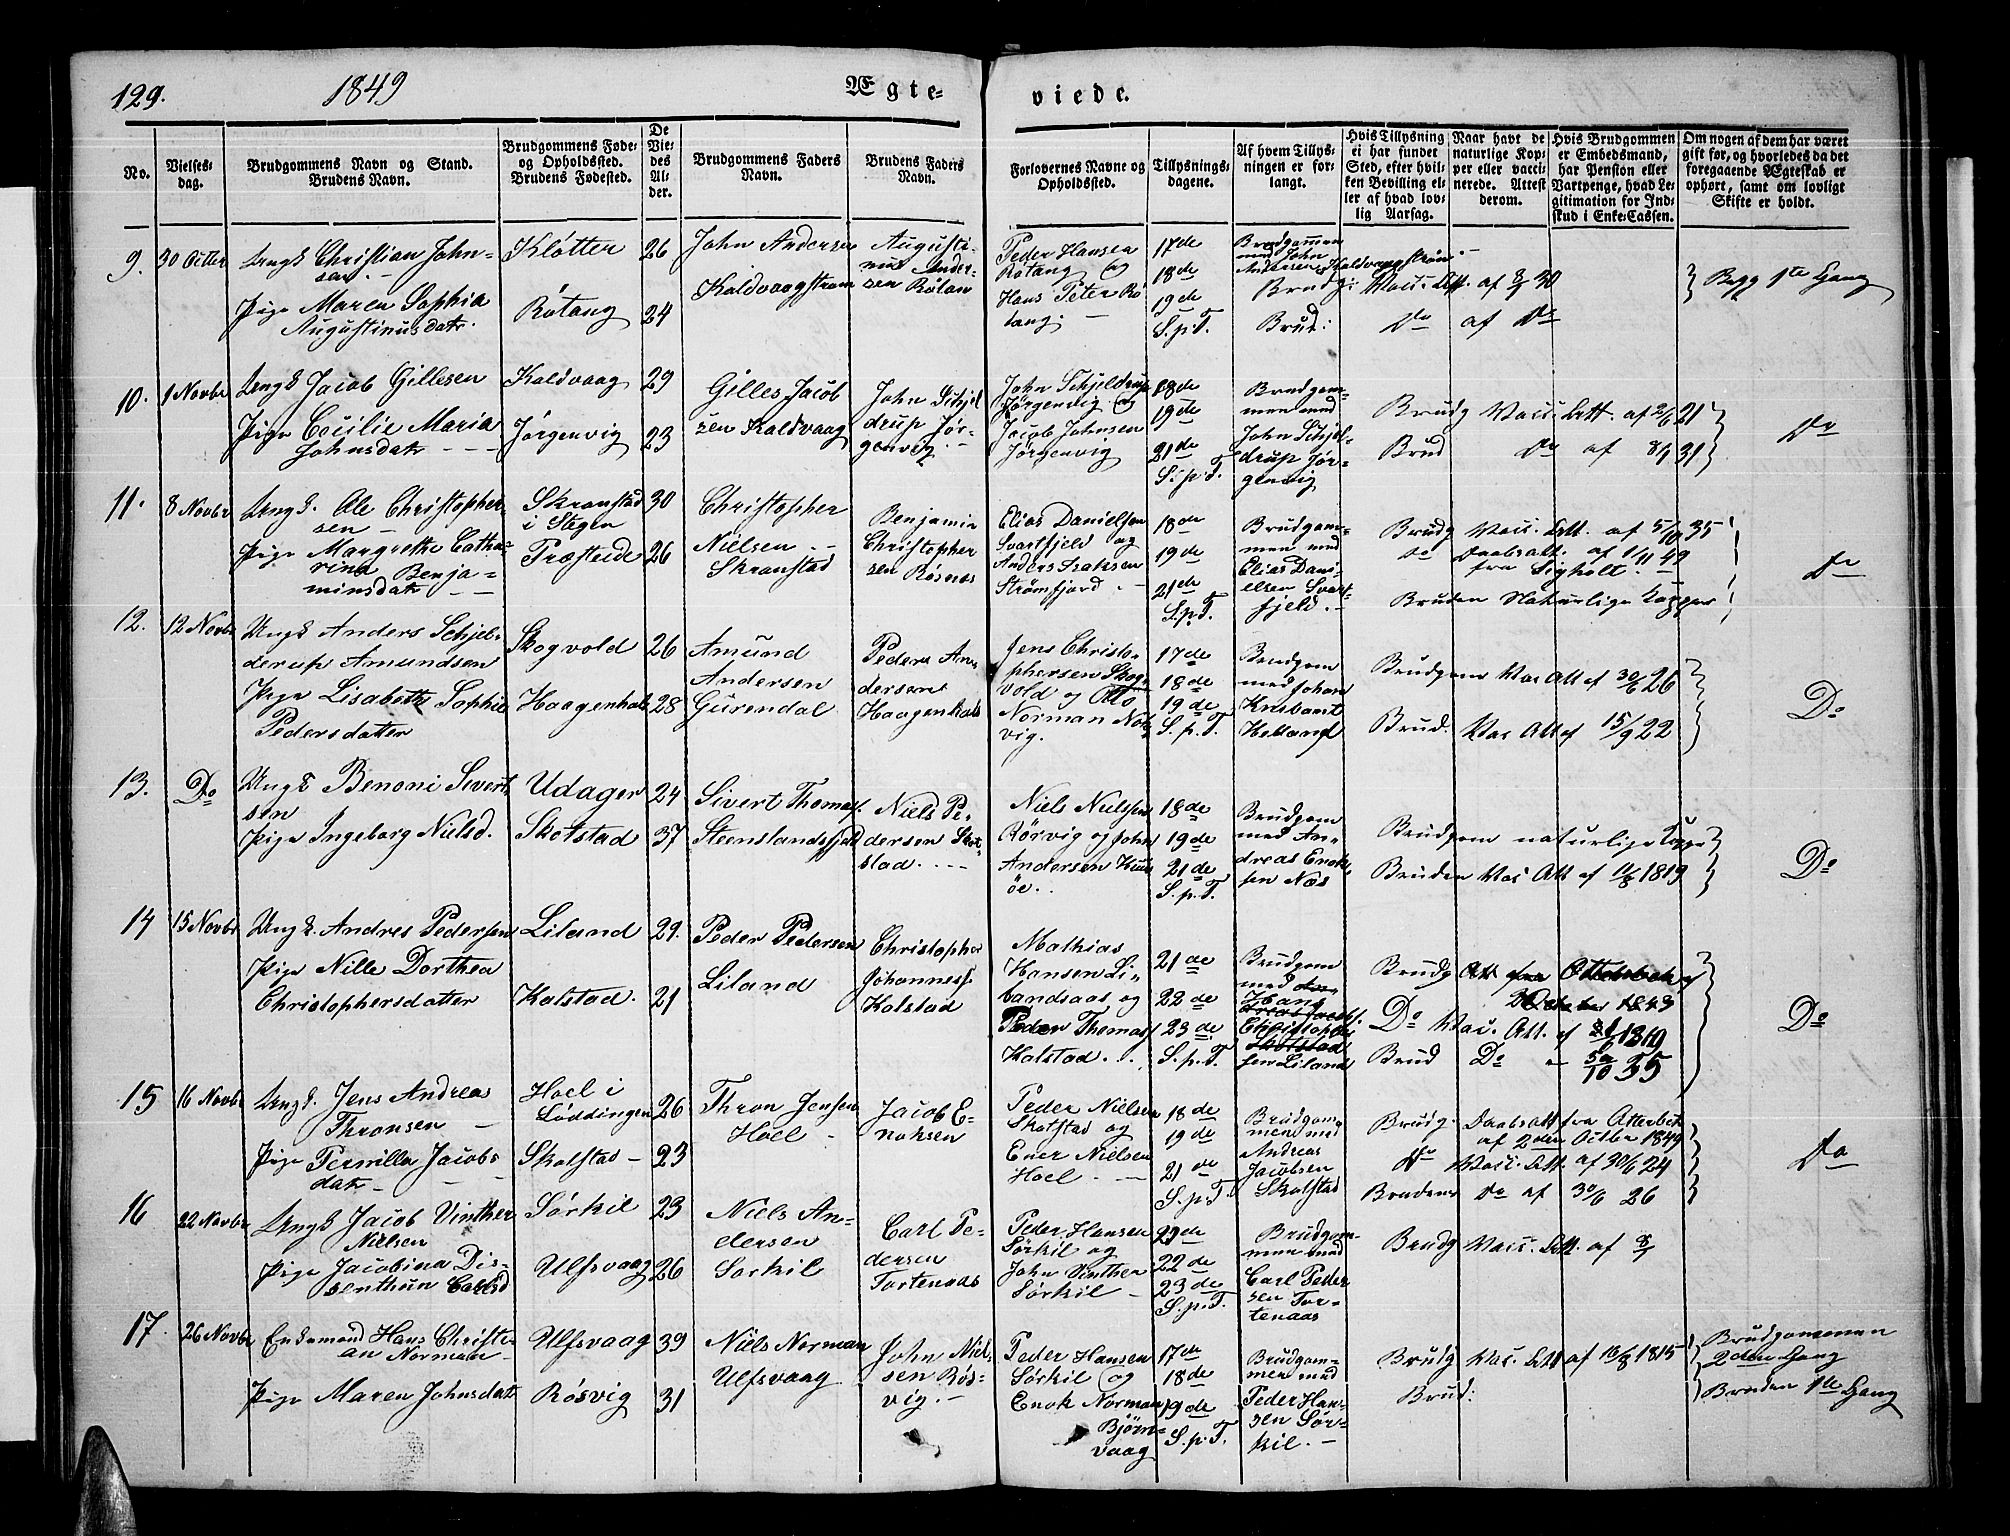 129.
1849
Ægte-
viede.
No.
Vielses-
dag.
Brudgommens Navn og Stand.
Brudens Navn.
Brudgommens Føde-
og Opholdssted.
Brudens Fødested.
De
Vie-
des
Al-
der.
Brudgommens Faders
Navn.
Brudens Faders
Navn.
Forlovernes Navne og
Opholdssted.
Tillysnings-
dagene.
Af hvem Tillys-
ningen er for-
langt.
Hvis Tillysning
ei har fundet
Sted, efter hvil-
ken Bevilling el-
ler af hvad lov-
lig Aarsag.
Naar havt de
naturlige Kop-
per eller vacci-
nerede. Attest
derom.
Hvis Brudgommen
er Embedsmand,
har Pension eller
Vartpenge, hvad Le-
gitimation for Ind-
skud i Enke-Cassen.
Om nogen af dem har været
gift før, og hvorledes da det
foregaaende Ægteskab er
ophørt, samt om lovligt
Skifte er holdt.
9. 30 Octbr
Ungk Christian John-
sen
Pige Maren Sophia
Augustinusdatr.
Kløtter
Røtang
26
24
John Andersen
Kaldvaagstrøm
Augusti-
nus Ander-
sen Røtan
Peder Hansen
Røtang og
Hans Peter Rø
tang.
17de
18de
19de
S.p.T.
Brudgommen
med John
Andersen Kaldvaagstrøm
Brudg: Vacc. Att. af 8/9 30
Brud: Do af Do
Begg 1te Gang
10. 1 Novbr
Ungk Jacob Gillesen
Pige Cecilie Maria
Johnsdatr
Kaldvaag
Jørgenvig
29
23
Gilles Jacob
sen Kaldvaag
John Schjel
drup Jør-
genvig.
John Schjeldrup
Jørgenvig og
Jacob Johnsen
Jørgenvig
18de
19de
21de
S.p.T.
Brudgom-
men med
John Schjel-
drup Jør-
genvig
Brudg Vacc. Att. af 2/6 21
Brud Do af 8/9 31
Do
11. 8 Novbr
Ungk. Ole Christopher-
sen
Pige Margrethe Catha-
rina Benja-
minsdatr
Skranstad
i Stegen
Præsteide
30
26
Christopher
Nielsen
Skranstad
Benjamin
Christopher
sen Røsnes
Elias Danielsen
Svartfjeld og
Anders Isaksen
Strømfjord
18de
19de
21de
S.p.T.
Brudgom-
men med
Elias Dani-
elsen Svart-
fjeld.
Brudg Vacc. Att. af 5/10 35
do Daabsatt. af 1/11 49
fra Sigholt.
Bruden Naturlige Kopper
Do
12. 12 Novbr
Ungk Anders Schjel-
derup Amundsen
Pige Lisabeth Sophie
Pedersdatter
Skogvold
Haagenhals
26
28
Amund
Andersen
Gurendal
Peder An-
dersen
Haagenhals
Jens Christo-
phersen Skog-
vold og Otto
Norman
vig.
17de
18de
19de
S.p.T.
Brudgom
med Johan
Helland
Brudgom Vac Att af 30/6 26
Brud. Vac Att af 15/9 22
Do
13. Do
Ungk Benoni Sivert
sen
Pige Ingeborg Nielsd.
Udager
Skotstad
24
37
Sivert Thomas.
Steenslandsfjeld
Niels Pe-
dersen Skot-
stad.
Niels Nielsen
Rørvig og John
Andersen
øe.
18de
19de
21de
S.p.T.
Brudgom
med An-
dreas Enok-
sen Næs
Brudgom naturlige Koppe
Bruden Vac Att af 11/8 1819
Do
14 15 Novbr
Ungk. Andres Pedersen
Pige Nille Dorthea
Christophersdatter
Liland
Kalstad.
29.
21
Peder Pedersen
Liland
Christopher
Johannes.
Kalstad
Mathias
Hansen Li-
landsaas og
Peder Thomas.
Kalstad
21de
22de
23de
S.p.T.
Brudgom
med
Hans
Christopher
sen Liland
Brudg Att fra Ottersbek af
October 1843
Do Vac. Att. af 1819
Brud Do 30/10 35
Do
15 16 Novbr
Ungk. Jens Andreas
Thronsen
Pige Pernilla Jacobs
datr
Hoel i
Løddingen
Skotstad
26
23
Thron Jensen
Hoel
Jacob E-
noksen
Peder Nielsen
Skotstad og
Ener Nielsen
Hoel
18de
19de
21de
S.p.T.
Brudgom-
men med
Andreas
Jacobsen
Skotstad
Brudg. Daabsatt fra Otterbek
af 2den Octbr 1849
do Vacc. Att. af 30/6 24
Brudens Do af 30/6 26
Do
16 22 Novbr
Ungk Jacob Vinther
Nielsen
Pige Jacobina Dis-
senthun Carlsd
Sørkil
Ulfsvaag
23
26
Niels An-
dersen
Sørkil
Carl Pe-
dersen
Tortenaas
Peder Hansen
Sørkil og
John Vinther
Sørkil
22de
23de
S.p.T.
Brudgom-
men med
Carl Peder
sen Tor-
tenaas
Brudg Vacc. Att. af
17. 26 Novbr
Enkemand Hans Christi-
an Norman
Pige Maren Johnsdatr
Ulfsvaag
Røsvig
39
31
Niels Norman
Ulfsvaag
John Niel-
sen Røs-
vig.
Peder Hansen
Sørkil og
Enok Norman
Bjørn-
vaag
17de
18de
19de
S.p.T.
Brudgom-
men med
Peder Han-
sen Sør-
kil.
Brudg Vac. Att af 16/8 1815
Brud:
Brudgommen
2den Gang
Bruden 1te Gang